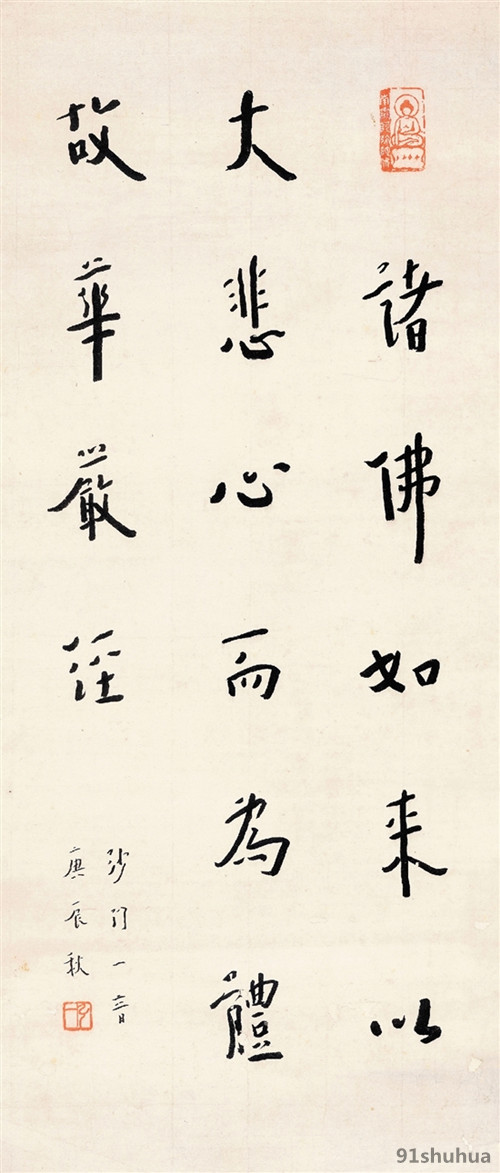 諸佛如来以
大悲心而為體
故華嚴經
沙门一音
庚辰秋
91shuhua